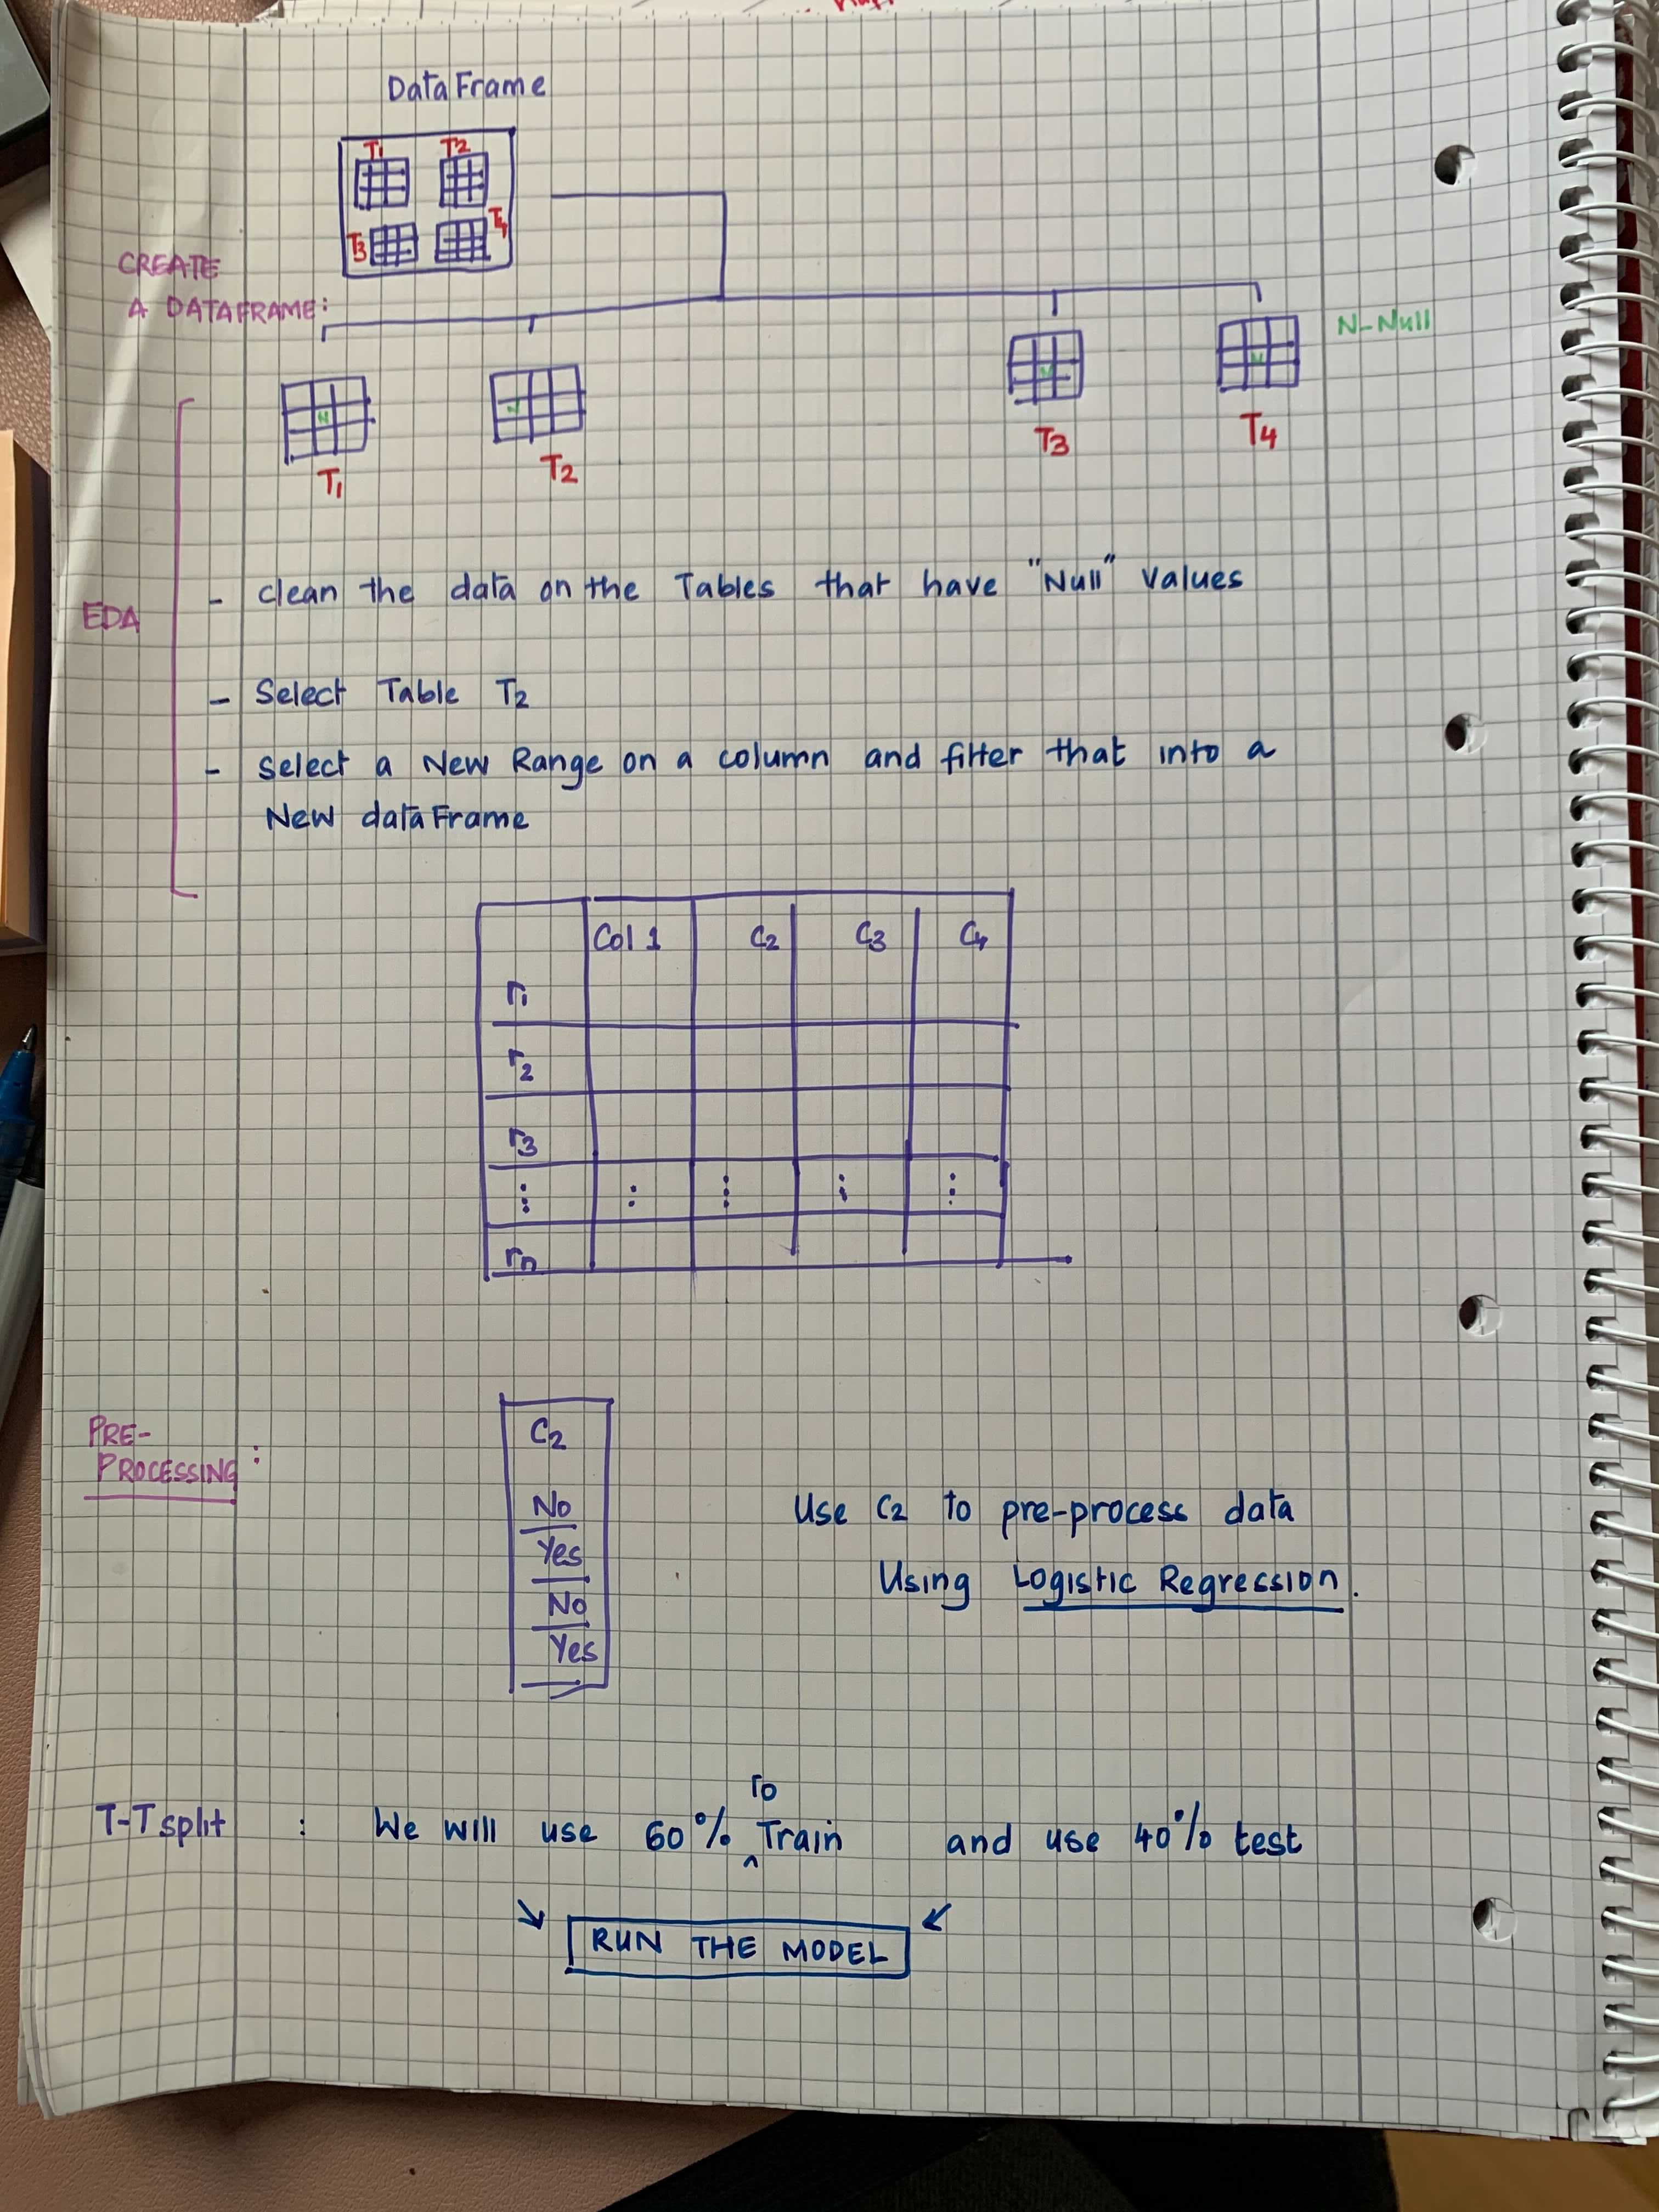 DataFrame
T1 T2
T3 T4
CREATE
A DATAFRAME:
N-Null
N N N N
T1 T2 T3 T4
EDA
- clean the data on the Tables that have "Null" values
- Select Table T2
- select a New Range on a column and filter that into a
New dataFrame
Col 1 C2 C3 C4
r1
r2
r3
⋮ : ⋮ ⋮ ⋮
rn
PRE-
PROCESSING:
C2
No
Yes
No
Yes
Use C2 to pre-process data
Using Logistic Regression.
T-T split : We will use 60% To Train and use 40% test
RUN THE MODEL